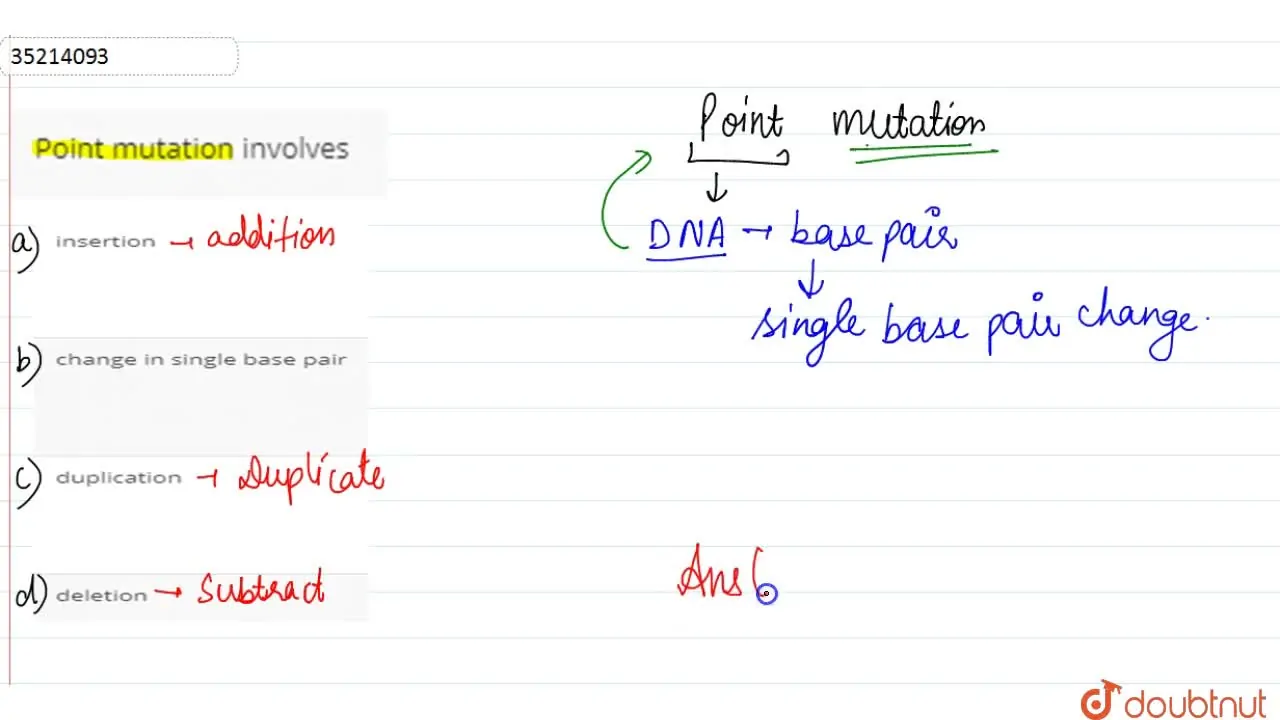 35214093
Point mutation involves
a) insertion → addition
b) change in single base pair
c) duplication → Duplicate
d) deletion → Subtract
Point mutation
↓
DNA → base pair
↓
single base pair change.
Ans (
doubtnut